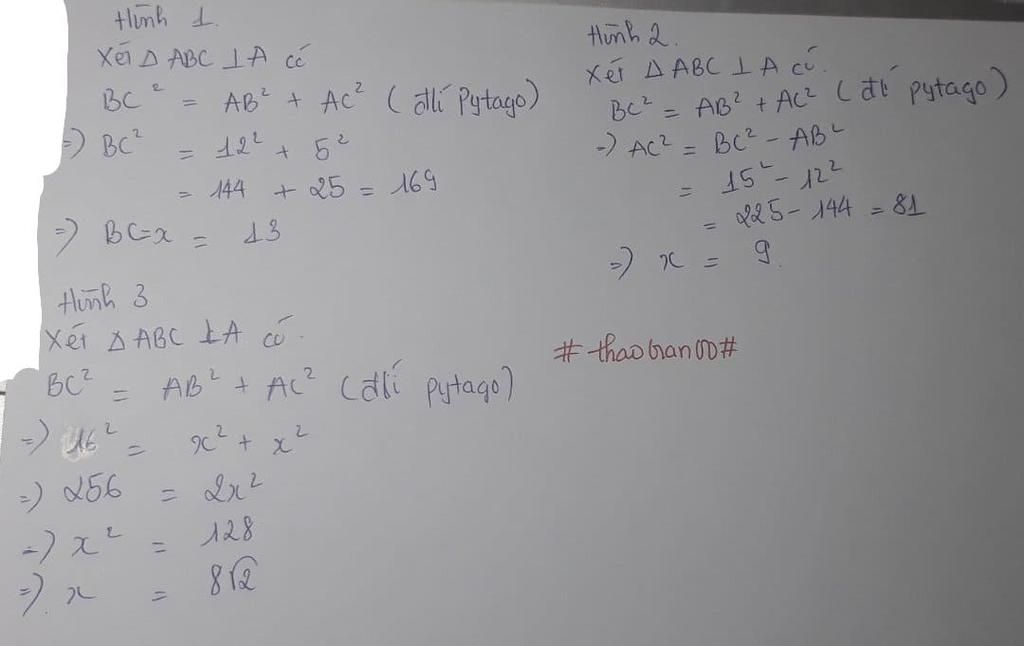 Hình 1.
Xét Δ ABC ⊥ A có
BC² = AB² + AC² (đlí Pytago)
=) BC² = 12² + 5²
= 144 + 25 = 169
=) BC=x = 13
Hình 2.
Xét Δ ABC ⊥ A có.
BC² = AB² + AC² (đlí pytago)
=) AC² = BC² - AB²
= 15² - 12²
= 225 - 144 = 81
=) x = 9.
Hình 3
Xét Δ ABC ⊥ A có.
BC² = AB² + AC² (đlí pytago)
=) 16² = x² + x²
=) 256 = 2x²
=) x² = 128
=) x = 8√2